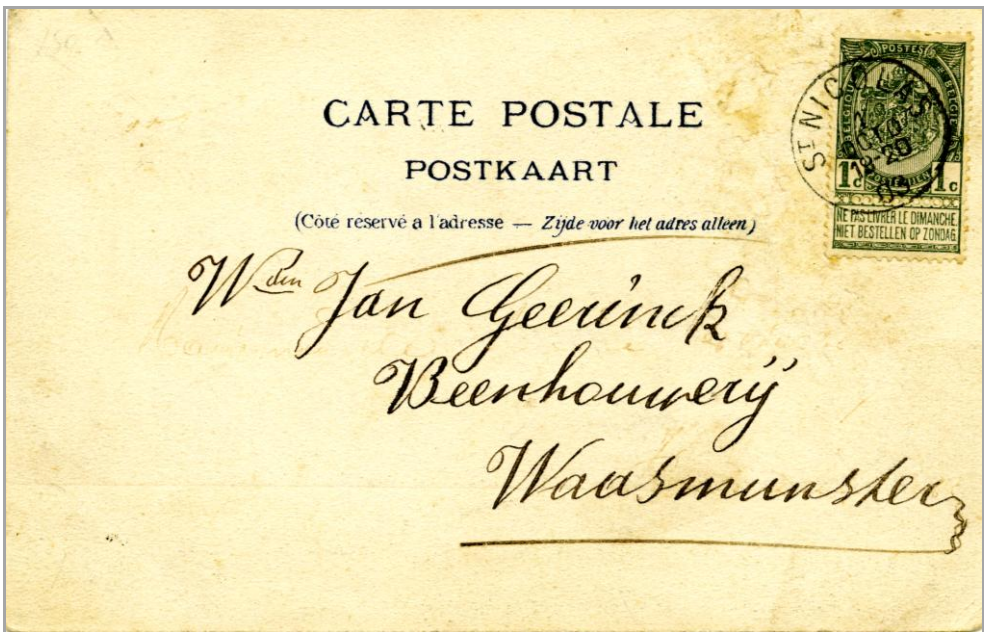 CARTE POSTALE
POSTKAART
(Côté réservé a l'adresse — Zijde voor het adres alleen)
POSTES
BELGIQUE
BELGIË
1c 1c
NE PAS LIVRER LE DIMANCHE
NIET BESTELLEN OP ZONDAG
ST NICOLAS
18-20
03
Wden Jan Geerinck
Beenhouwerÿ
Waasmunster